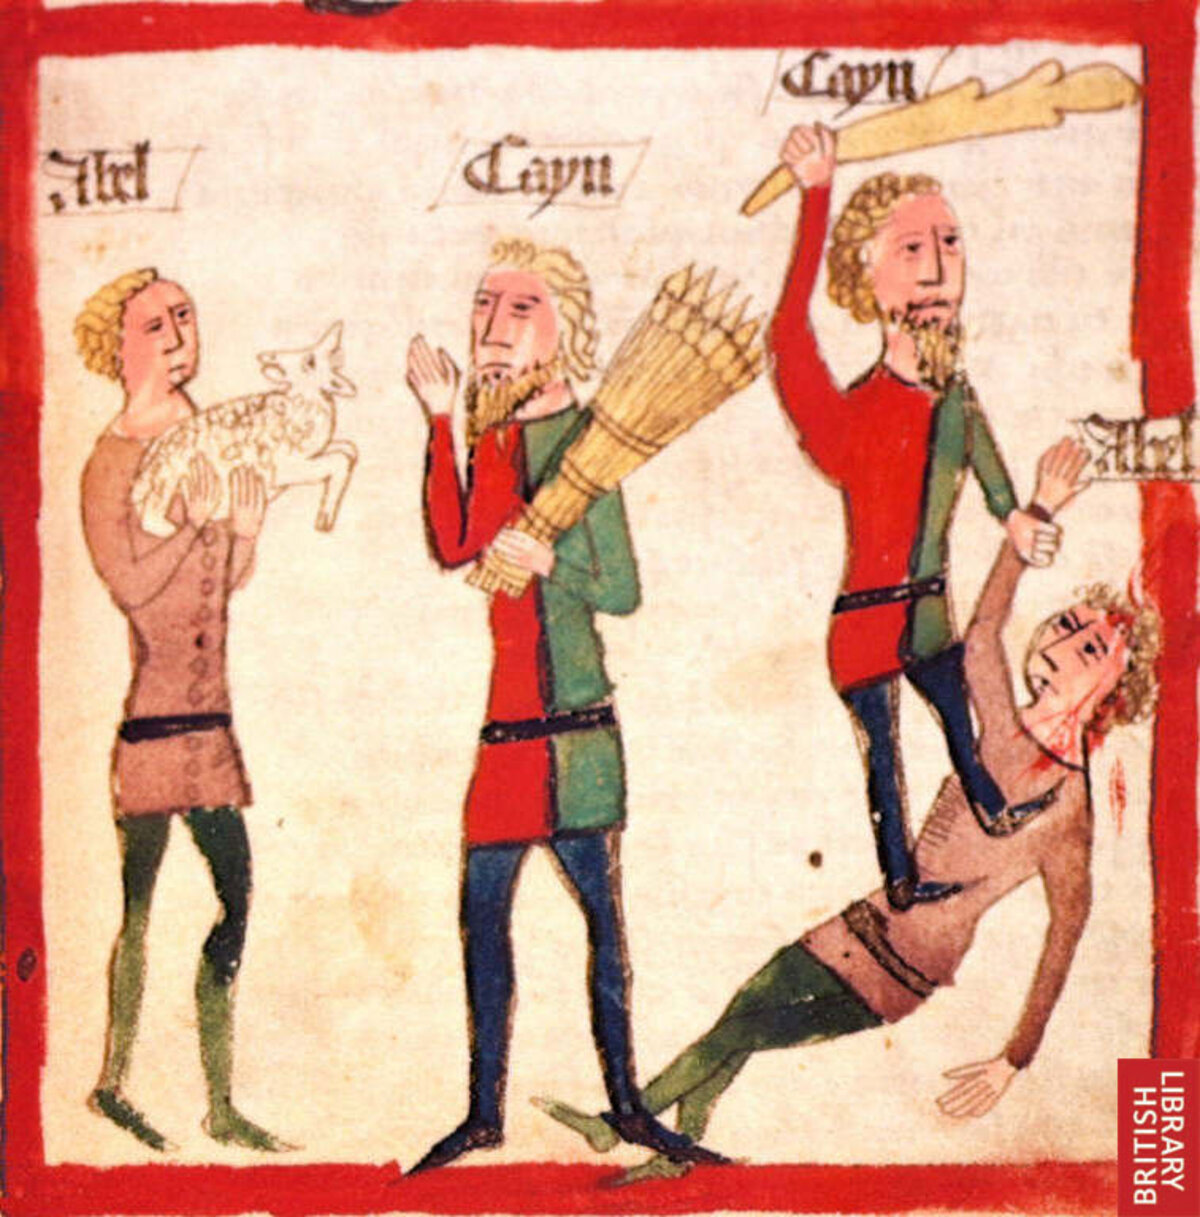 Abel
Cayn
Cayn
Abel
BRITISH
LIBRARY